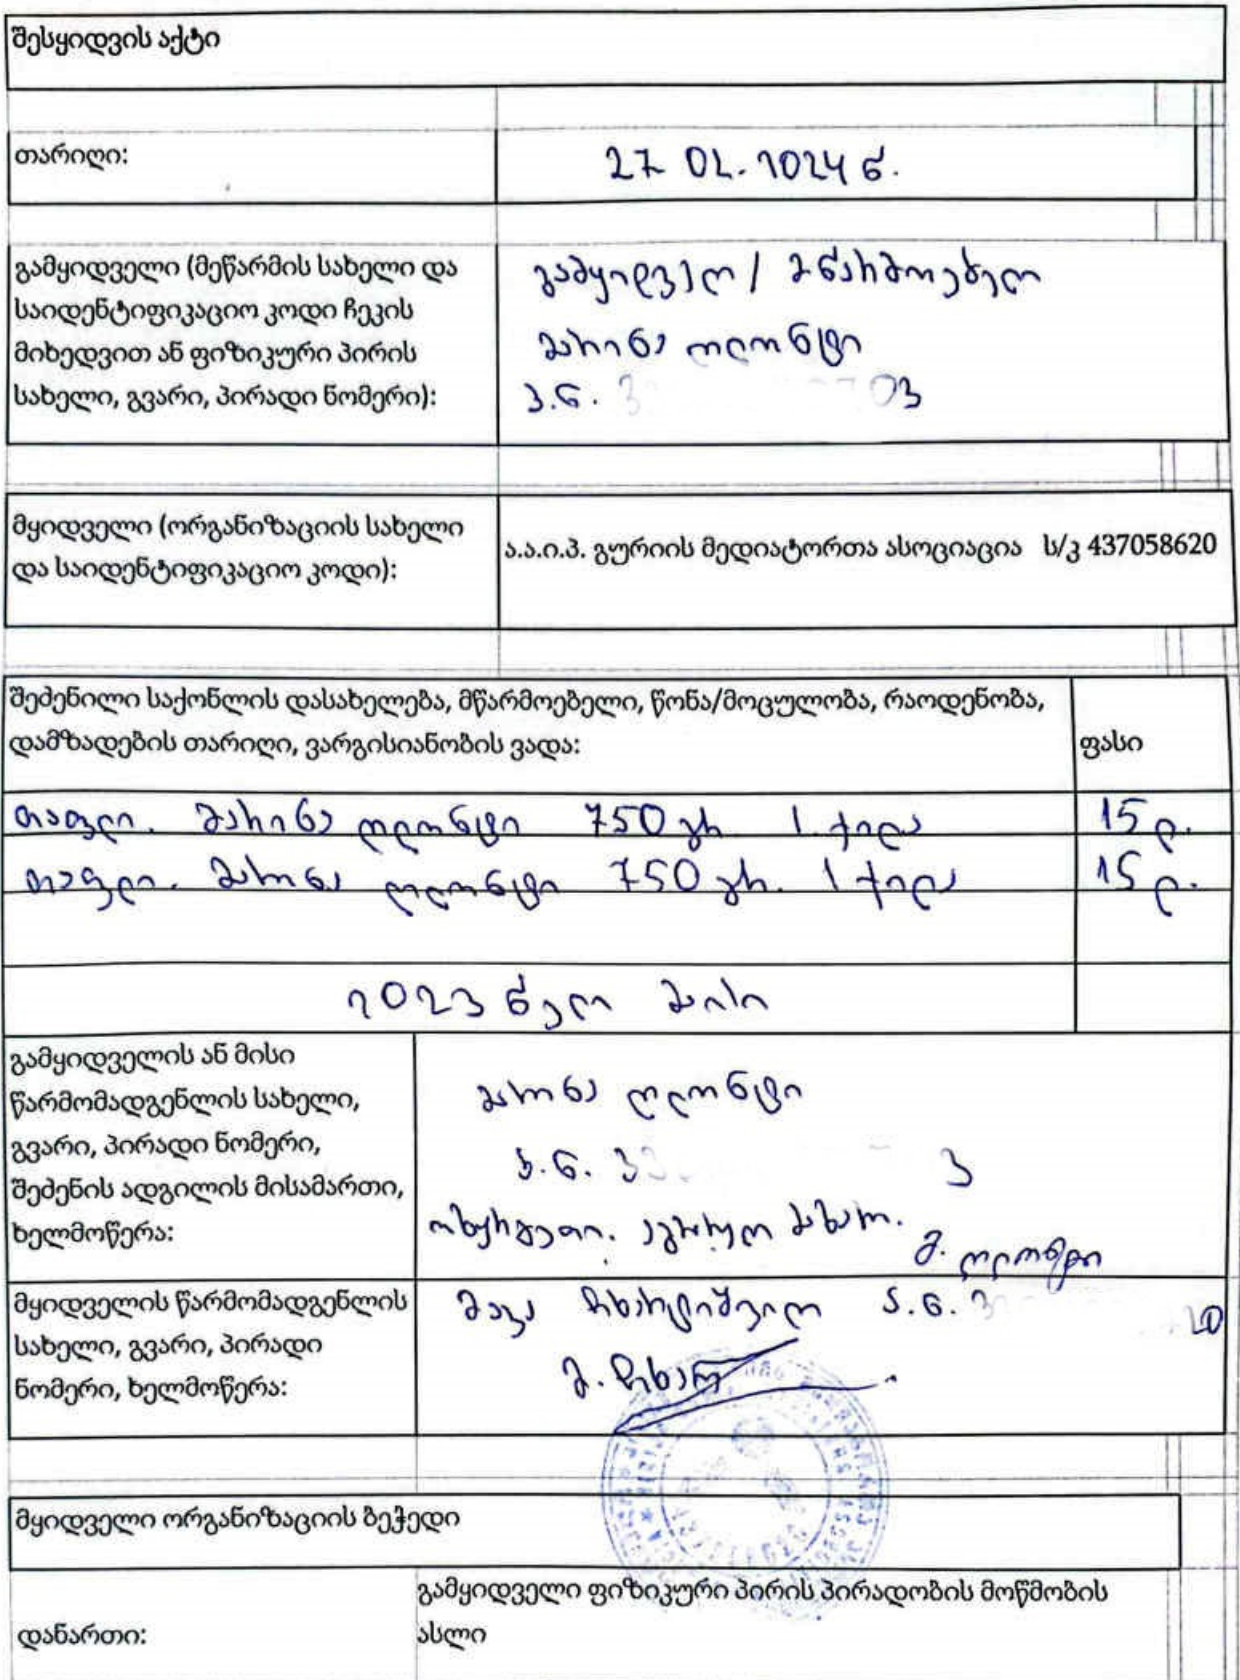 შესყიდვის აქტი
თარიღი:
27 02. 2024 წ.
გამყიდველი (მეწარმის სახელი და
საიდენტიფიკაციო კოდი ჩეკის
მიხედვით ან ფიზიკური პირის
სახელი, გვარი, პირადი ნომერი):
გამყიდველი / მწარმოებელი
მარინა ღლონტი
პ.ნ. 3 03
მყიდველი (ორგანიზაციის სახელი
და საიდენტიფიკაციო კოდი):
ა.ა.ი.პ. გურიის მედიატორთა ასოციაცია ს/კ 437058620
შეძენილი საქონლის დასახელება, მწარმოებელი, წონა/მოცულობა, რაოდენობა,
დამზადების თარიღი, ვარგისიანობის ვადა:
ფასი
თაფლი. მარინა ღლონტი 750 გრ. 1 ქილა 15 ლ.
თაფლი. მარინა ღლონტი 750 გრ. 1 ქილა 15 ლ.
2023 წელი მაისი
გამყიდველის ან მისი
წარმომადგენლის სახელი,
გვარი, პირადი ნომერი,
შეძენის ადგილის მისამართი,
ხელმოწერა:
მარინა ღლონტი
პ.ნ. 3 3
ოზურგეთი. აგრარული ბაზარი.
მ. ღლონტი
მყიდველის წარმომადგენლის
სახელი, გვარი, პირადი
ნომერი, ხელმოწერა:
მაკა ჩხარტიშვილი პ.ნ. 3 20
მ. ჩხარ
მყიდველი ორგანიზაციის ბეჭედი
დანართი:
გამყიდველი ფიზიკური პირის პირადობის მოწმობის
ასლი